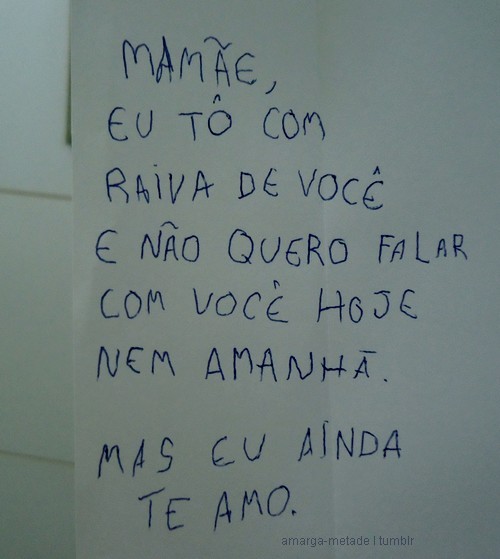 MAMÃE,
EU TÔ COM
RAIVA DE VOCÊ
E NÃO QUERO FALAR
COM VOCÊ HOJE
NEM AMANHÃ.
MAS EU AINDA
TE AMO.
amarga-metade l tumblr